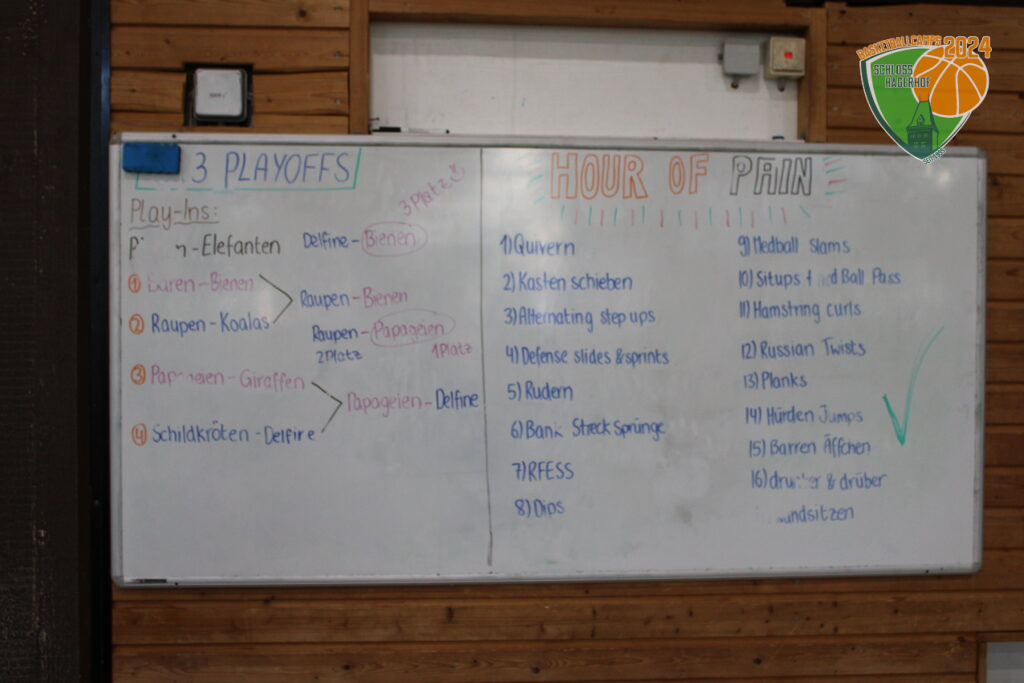 BASKETBALLCAMPS 2024
SCHLOSS
HAGERHOF
3 PLAYOFFS
3 Platz
Play-Ins:
-Elefanten
Delfine - Bienen
① -Bienen
Raupen - Bienen
② Raupen - Koalas
Raupen - Papageien
2Platz 1Platz
③ - Giraffen
Papageien - Delfine
④ Schildkröten - Delfine
HOUR OF PAIN
1) Quivern
2) Kasten schieben
3) Alternating step ups
4) Defense slides & sprints
5) Rudern
6) Bank Streck Sprünge
7) RFESS
8) Dips
9) Medball Slams
10) Situps Ball Pass
11) Hamstring curls
12) Russian Twists
13) Planks
14) Hürden Jumps
15) Barren Äffchen
16) & drüber